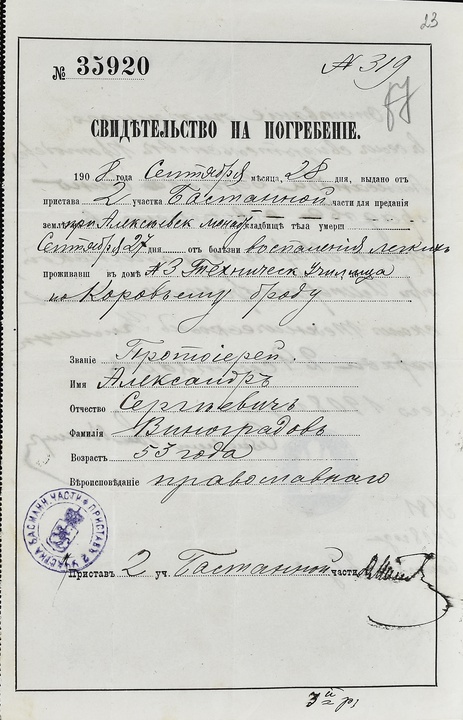 23
№ 35920
№ 319
87
СВИДѢТЕЛЬСТВО НА ПОГРЕБЕНІЕ.
1908 года Сентября мѣсяца, 28 дня, выдано отъ
пристава 2 участка Басманной части для преданія
землѣ при Алексѣевск монас кладбищѣ тѣла умерш
Сентября 27 дня отъ болѣзни воспаленія легкихъ
проживавш въ домѣ №3 Техническ Училища
по Коровьему броду
Званіе Протоіерей.
Имя Александръ
Отчество Сергѣевичъ
Фамилія Виноградовъ
Возрастъ 53 года
Вѣроисповѣданіе православнаго
ПРИСТАВЪ 2 УЧАСТКА БАСМАНН. ЧАСТИ
Приставъ 2 уч. Басманной части
3й р